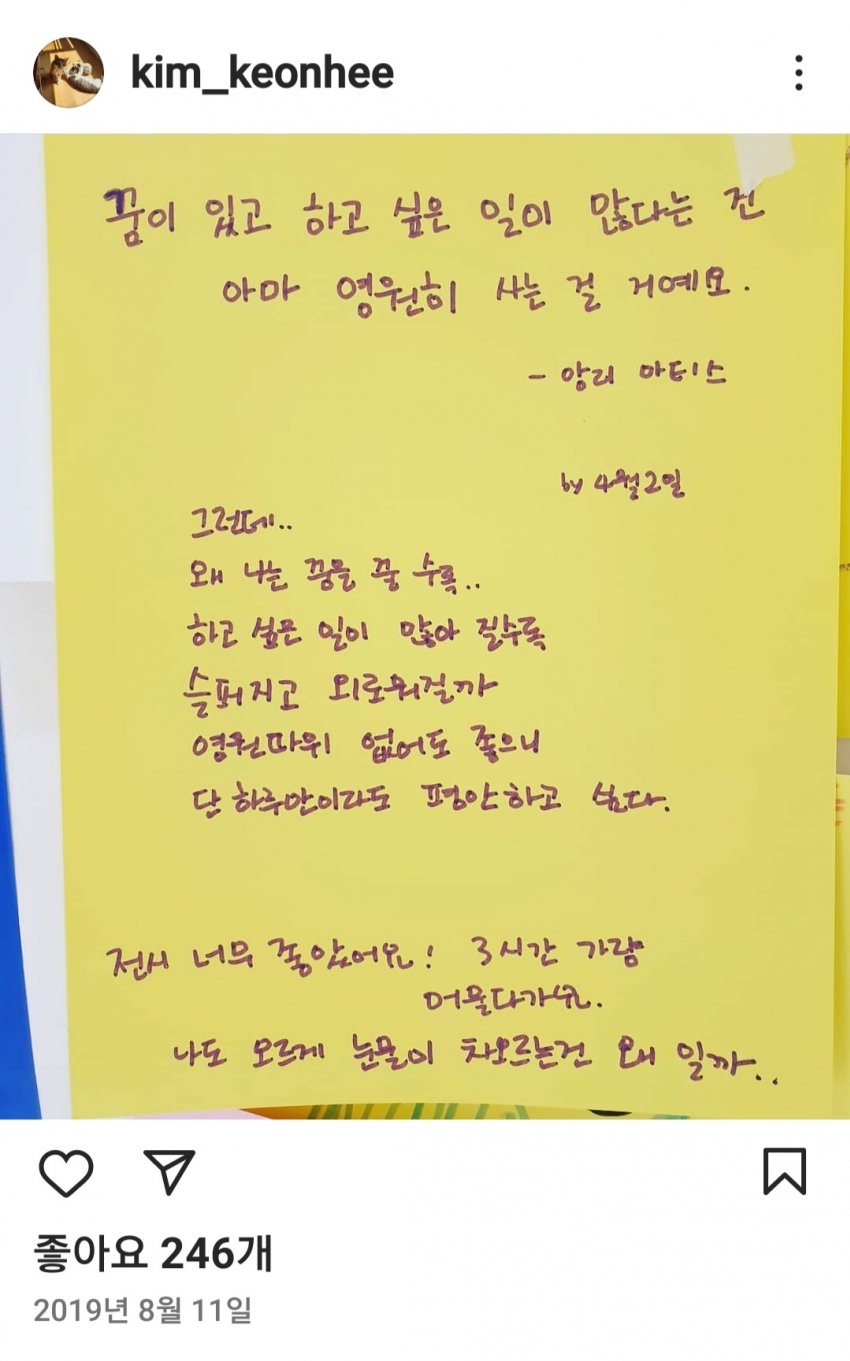 kim_keonhee
꿈이 있고 하고 싶은 일이 많다는 건
아마 영원히 사는 걸 거예요.
- 앙리 마티스
by 4월2일
그런데..
왜 나는 꿈을 꿀 수록..
하고 싶은 일이 많아 질수록
슬퍼지고 외로워질까
영원따위 없어도 좋으니
단 하루만이라도 평안하고 싶다.
전시 너무 좋았어요! 3시간 가량
머물다가요.
나도 모르게 눈물이 차오르는건 왜 일까..
좋아요 246개
2019년 8월 11일